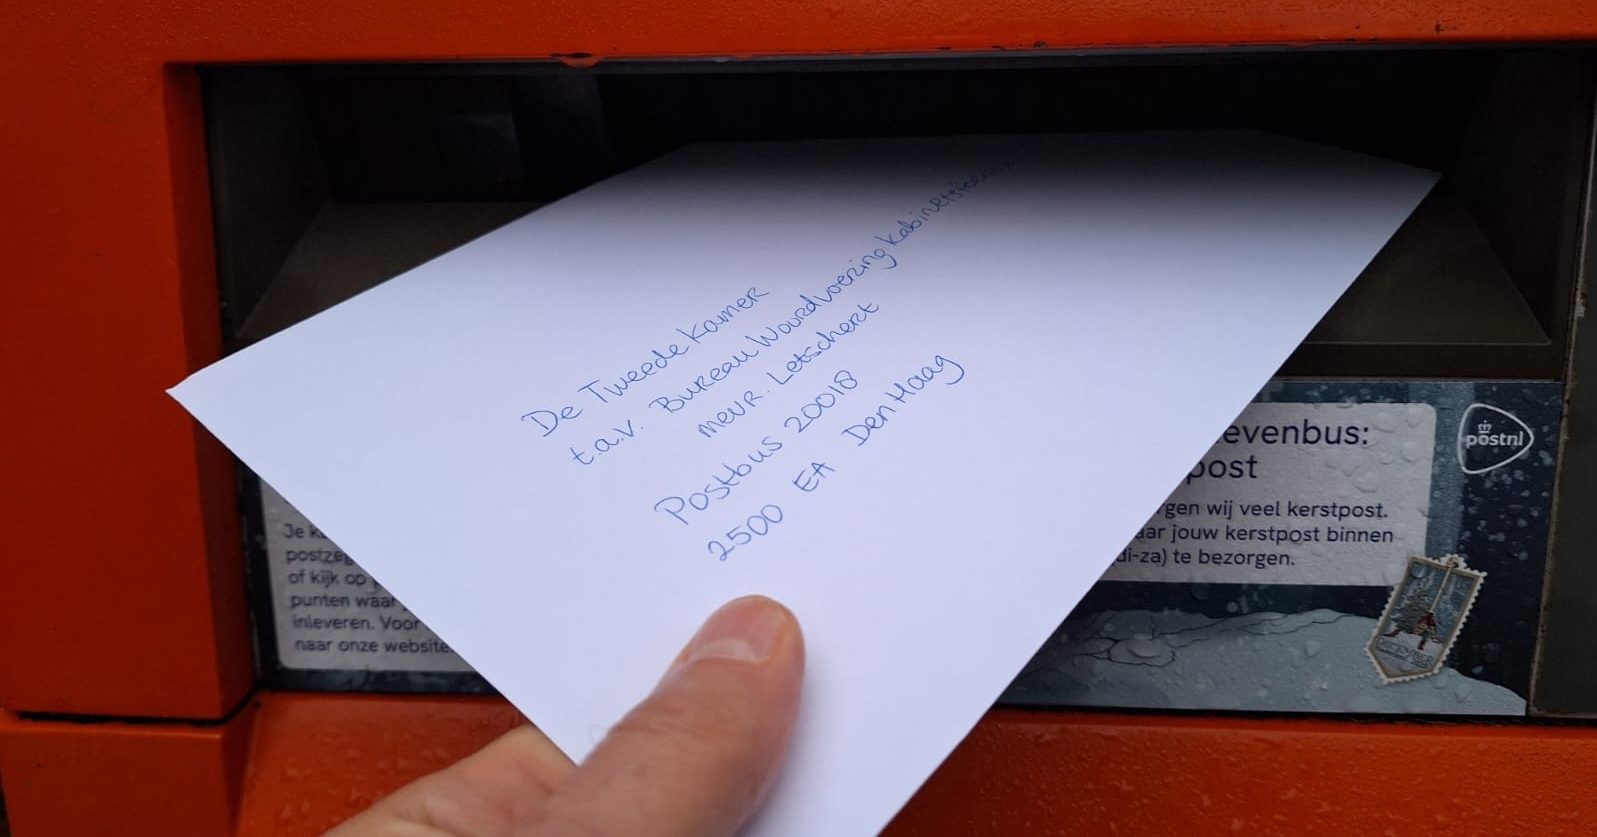 De Tweede Kamer
t.a.v. Bureau Woordvoering
mevr. Letschert
Postbus 20018
2500 EA Den Haag
Je
of kijk op
punten waar
inleveren. Voor
naar onze website
evenbus:
post
gen wij veel kerstpost.
aar jouw kerstpost binnen
di-za) te bezorgen.
postnl
DECEMBER